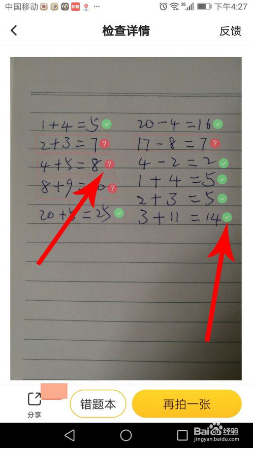 中国移动
下午4:27
检查详情
反馈
1+4=5
2+3=7
4+5=8
8+9=
20+5=25
20-4=16
17-8=7
4-2=2
1+4=5
2+3=5
3+11=14
分享
错题本
再拍一张
Baidu经验
jingyan.baidu.com